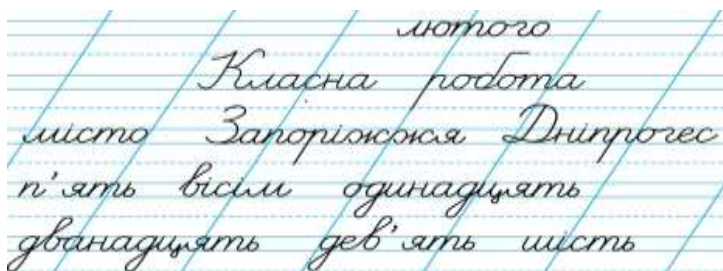 лютого
Класна робота
місто Запоріжжя Дніпрогес
п'ять вісім одинадцять
дванадцять дев'ять шість